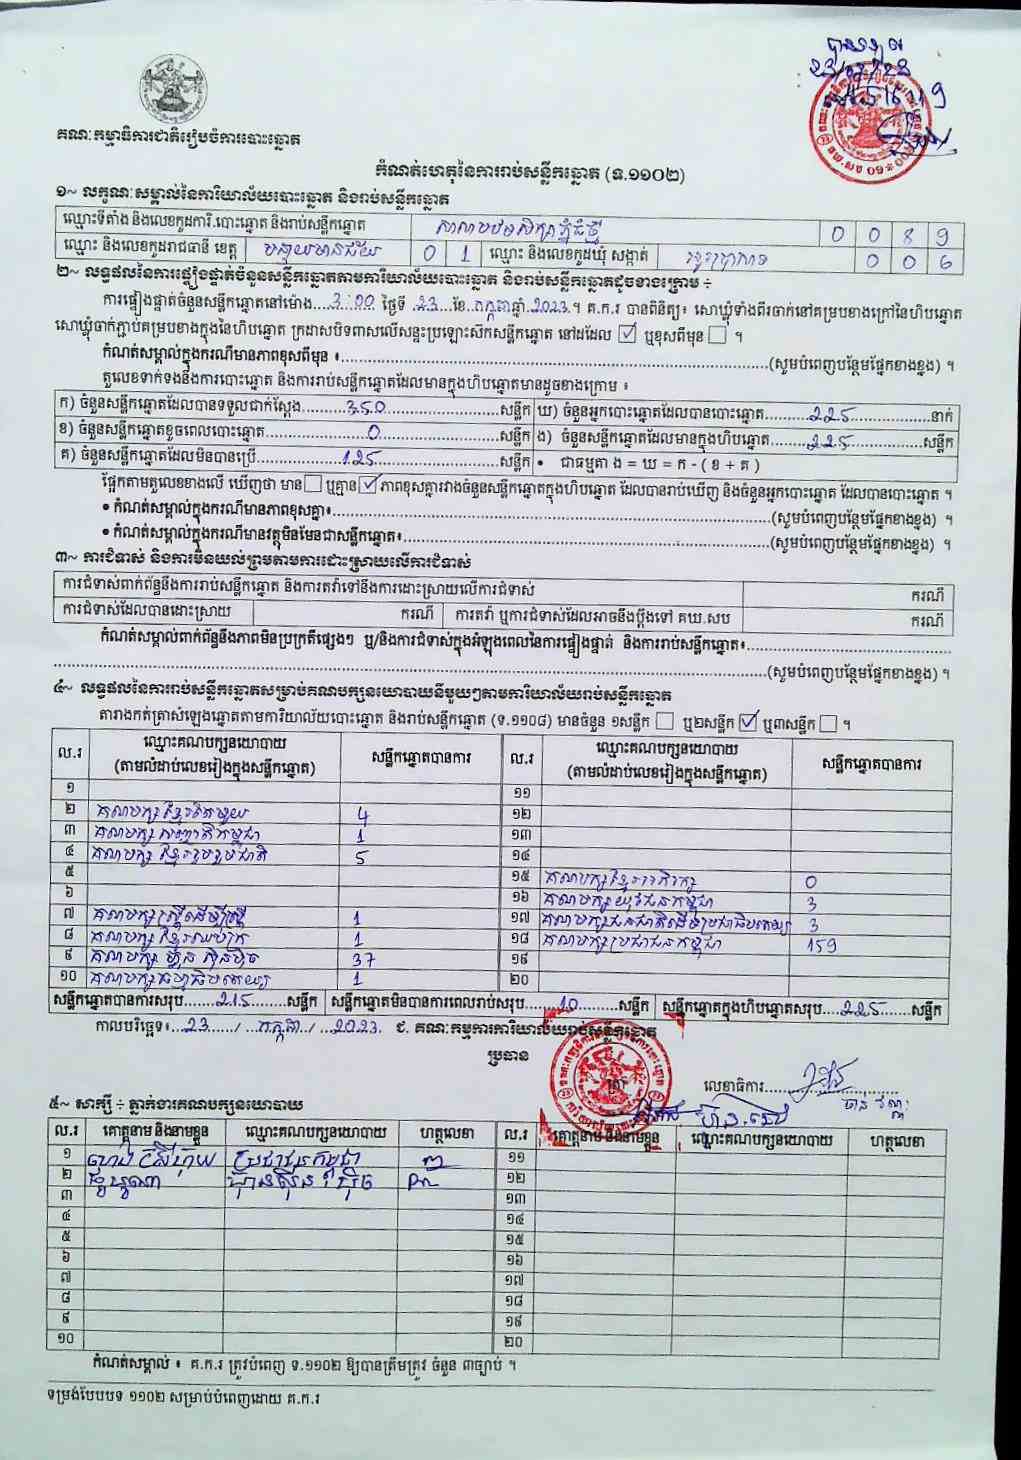 គណៈកម្មាធិការជាតិរៀបចំការបោះឆ្នោត
កំណត់ហេតុនៃការរាប់សន្លឹកឆ្នោត (ទ.១១០២)
១~ លក្ខណៈសម្គាល់នៃការិយាល័យបោះឆ្នោត និងរាប់សន្លឹកឆ្នោត
ឈ្មោះទីតាំង និងលេខកូដការិ.បោះឆ្នោត និងរាប់សន្លឹកឆ្នោត 0 0 8 9
ឈ្មោះ និងលេខកូដរាជធានី ខេត្ត បន្ទាយមានជ័យ 0 1 ឈ្មោះ និងលេខកូដឃុំ សង្កាត់ 0 0 6
២~ លទ្ធផលនៃការផ្ទៀងផ្ទាត់ចំនួនសន្លឹកឆ្នោតតាមការិយាល័យបោះឆ្នោត និងរាប់សន្លឹកឆ្នោតដូចខាងក្រោម ÷
ការផ្ទៀងផ្ទាត់ចំនួនសន្លឹកឆ្នោតនៅម៉ោង...3:00 ថ្ងៃទី .23...ខែ.កក្កដា.ឆ្នាំ.2023.។ គ.ក.រ បានពិនិត្យ៖ សោឃ្លុំទាំងពីរចាក់នៅគម្របខាងក្រៅនៃហិបឆ្នោត
សោឃ្លុំចាក់ភ្ជាប់គម្របខាងក្នុងនៃហិបឆ្នោត ក្រដាសបិទពាសលើសន្ទះប្រឡោះស៊កសន្លឹកឆ្នោត នៅដដែល ☑ ឬខុសពីមុន ☐ ។
កំណត់សម្គាល់ក្នុងករណីមានភាពខុសពីមុន ៖...(សូមបំពេញបន្ថែមផ្នែកខាងខ្នង) ។
តួលេខទាក់ទងនឹងការបោះឆ្នោត និងការរាប់សន្លឹកឆ្នោតដែលមានក្នុងហិបឆ្នោតមានដូចខាងក្រោម ៖
ក) ចំនួនសន្លឹកឆ្នោតដែលបានទទួលជាក់ស្តែង...350...សន្លឹក ឃ) ចំនួនអ្នកបោះឆ្នោតដែលបានបោះឆ្នោត...225...នាក់
ខ) ចំនួនសន្លឹកឆ្នោតខូចពេលបោះឆ្នោត...0...សន្លឹក ង) ចំនួនសន្លឹកឆ្នោតដែលមានក្នុងហិបឆ្នោត...225...សន្លឹក
គ) ចំនួនសន្លឹកឆ្នោតដែលមិនបានប្រើ...125...សន្លឹក • ជាធម្មតា ង = ឃ = ក - ( ខ + គ )
ផ្អែកតាមតួលេខខាងលើ ឃើញថា មាន ☐ ឬគ្មាន ☑ ភាពខុសគ្នារវាងចំនួនសន្លឹកឆ្នោតក្នុងហិបឆ្នោត ដែលបានរាប់ឃើញ និងចំនួនអ្នកបោះឆ្នោត ដែលបានបោះឆ្នោត ។
• កំណត់សម្គាល់ក្នុងករណីមានភាពខុសគ្នា៖...(សូមបំពេញបន្ថែមផ្នែកខាងខ្នង) ។
• កំណត់សម្គាល់ក្នុងករណីមានវត្ថុមិនមែនជាសន្លឹកឆ្នោត៖...(សូមបំពេញបន្ថែមផ្នែកខាងខ្នង) ។
៣~ ការជំទាស់ និងការមិនយល់ព្រមតាមការដោះស្រាយលើការជំទាស់
ការជំទាស់ពាក់ព័ន្ធនឹងការរាប់សន្លឹកឆ្នោត និងការតវ៉ាទៅនឹងការដោះស្រាយលើការជំទាស់ ករណី
ការជំទាស់ដែលបានដោះស្រាយ ករណី ការតវ៉ា ឬការជំទាស់ដែលអាចនឹងប្តឹងទៅ គឃ.សប ករណី
កំណត់សម្គាល់ពាក់ព័ន្ធនឹងភាពមិនប្រក្រតីផ្សេងៗ ឬ/និងការជំទាស់ក្នុងអំឡុងពេលនៃការផ្ទៀងផ្ទាត់ និងការរាប់សន្លឹកឆ្នោត៖...
...(សូមបំពេញបន្ថែមផ្នែកខាងខ្នង) ។
៤~ លទ្ធផលនៃការរាប់សន្លឹកឆ្នោតសម្រាប់គណបក្សនយោបាយនីមួយៗតាមការិយាល័យរាប់សន្លឹកឆ្នោត
តារាងកត់ត្រាសំឡេងឆ្នោតតាមការិយាល័យបោះឆ្នោត និងរាប់សន្លឹកឆ្នោត (ទ.១១០៨) មានចំនួន ១សន្លឹក ☐ ឬ២សន្លឹក ☑ ឬ៣សន្លឹក ☐ ។
ល.រ ឈ្មោះគណបក្សនយោបាយ (តាមលំដាប់លេខរៀងក្នុងសន្លឹកឆ្នោត) សន្លឹកឆ្នោតបានការ ល.រ ឈ្មោះគណបក្សនយោបាយ (តាមលំដាប់លេខរៀងក្នុងសន្លឹកឆ្នោត) សន្លឹកឆ្នោតបានការ
១ ១១
២ គណបក្សខ្មែរតែមួយ 4 ១២
៣ គណបក្ស សញ្ជាតិកម្ពុជា 1 ១៣
៤ គណបក្ស ខ្មែររួបរួមជាតិ 5 ១៤
៥ ១៥ គណបក្សខ្មែរអភិរក្ស 0
៦ ១៦ គណបក្ស យុវជនកម្ពុជា 3
៧ គណបក្សស្ត្រីដើម្បីស្ត្រី 1 ១៧ គណបក្សជនជាតិដើមប្រជាធិបតេយ្យ 3
៨ គណបក្ស ខ្មែរឈប់ក្រ 1 ១៨ គណបក្សប្រជាជនកម្ពុជា 159
៩ គណបក្ស ហ្វ៊ុនស៊ិនប៉ិច 37 ១៩
១០ គណបក្សធម្មាធិបតេយ្យ 1 ២០
សន្លឹកឆ្នោតបានការសរុប...215...សន្លឹក សន្លឹកឆ្នោតមិនបានការពេលរាប់សរុប...10...សន្លឹក សន្លឹកឆ្នោតក្នុងហិបឆ្នោតសរុប...225...សន្លឹក
កាលបរិច្ឆេទ៖...23..../...កក្កដា../...2023. ជ. គណៈកម្មការការិយាល័យរាប់សន្លឹកឆ្នោត
ប្រធាន
លេខាធិការ...
៥~ សាក្សី ÷ ភ្នាក់ងារគណបក្សនយោបាយ
ល.រ គោត្តនាម និងនាមខ្លួន ឈ្មោះគណបក្សនយោបាយ ហត្ថលេខា ល.រ គោត្តនាម និងនាមខ្លួន ឈ្មោះគណបក្សនយោបាយ ហត្ថលេខា
១ ប្រជាជនកម្ពុជា ១១
២ ហ៊្វុនស៊ិនប៉ិច ១២
៣ ១៣
៤ ១៤
៥ ១៥
៦ ១៦
៧ ១៧
៨ ១៨
៩ ១៩
១០ ២០
កំណត់សម្គាល់ ៖ គ.ក.រ ត្រូវបំពេញ ទ.១១០២ ឱ្យបានត្រឹមត្រូវ ចំនួន ៣ច្បាប់ ។
ទម្រង់បែបបទ ១១០២ សម្រាប់បំពេញដោយ គ.ក.រ